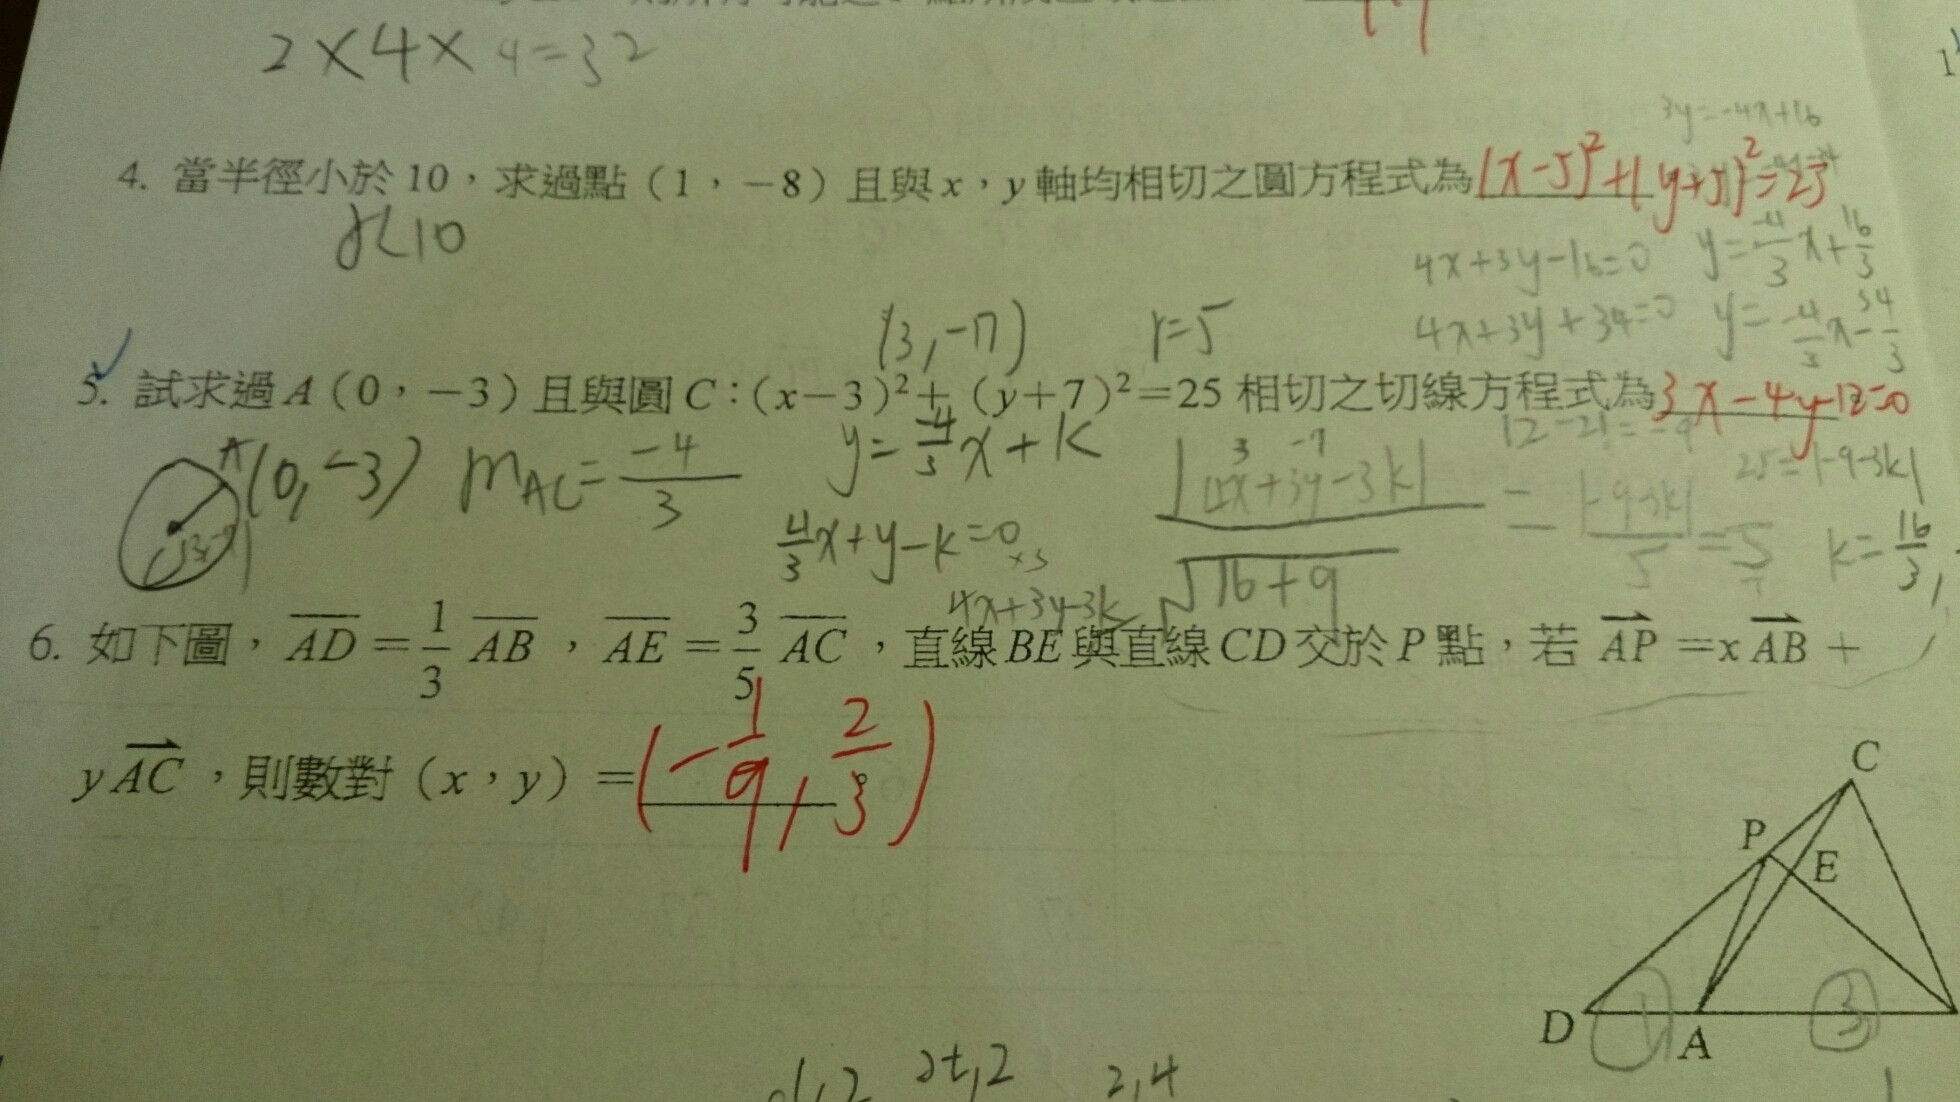 2×4×4=32
3y=-4x+16
4. 當半徑小於 10，求過點（1，−8）且與 x，y 軸均相切之圓方程式為 (x-5)²+(y+5)²=25
r<10
4x+3y-16=0 y=-4/3x+16/3
4x+3y+34=0 y=-4/3x-34/3
(3,-7) r=5
5. 試求過 A（0，−3）且與圓 C：(x−3)²＋(y＋7)²＝25 相切之切線方程式為 3x-4y-12=0
12-21=-9
A(0,-3) m_AC=-4/3 y=-4/3x+k |4x+3y-3k|/√16+9 = |-9-3k|/5=5 25=|-9-3k|
3 -7
4/3x+y-k=0 ×3 k=16/3,
4x+3y-3k
6. 如下圖，AD＝1/3 AB，AE＝3/5 AC，直線 BE 與直線 CD 交於 P 點，若 AP＝x AB＋
y AC，則數對（x，y）＝(-1/9, 2/3)
C
P
E
D
A
1
3
2t,2 2,4